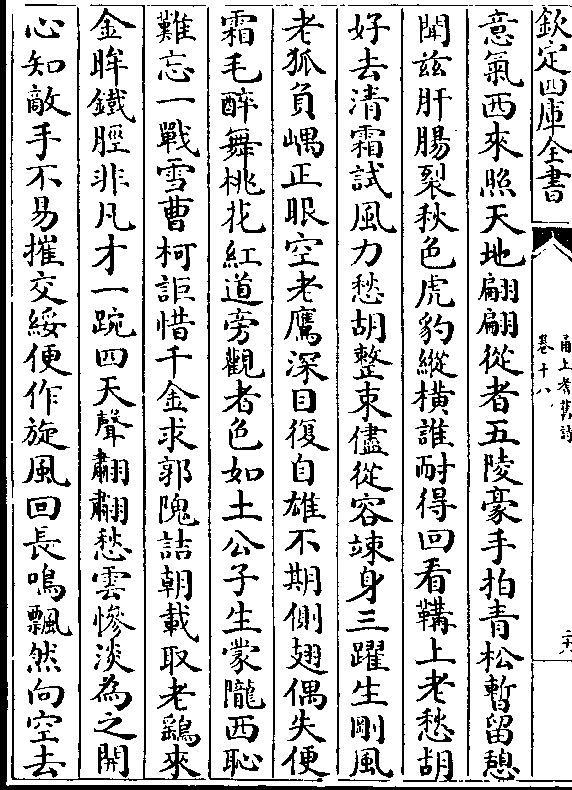 欽定四庫全書
甬上耆舊詩
卷十八
意氣西來照天地翩翩從者五陵豪手拍青松暫留憩
聞兹肝腸裂秋色虎豹縱橫誰耐得回看鞲上老愁胡
好去清霜試風力愁胡整束儘從容竦身三躍生剛風
老狐負嵎正眼空老鷹深目復自雄不期側翅偶失便
霜毛醉舞桃花紅道旁觀者色如土公子生蒙隴西恥
難忘一戰雪曹柯詎惜千金求郭隗詰朝載取老鷄來
金眸鐵脛非凡才一踠四天聲翽翽愁雲慘淡為之開
心知敵手不易摧交綏便作旋風回長鳴飄然向空去